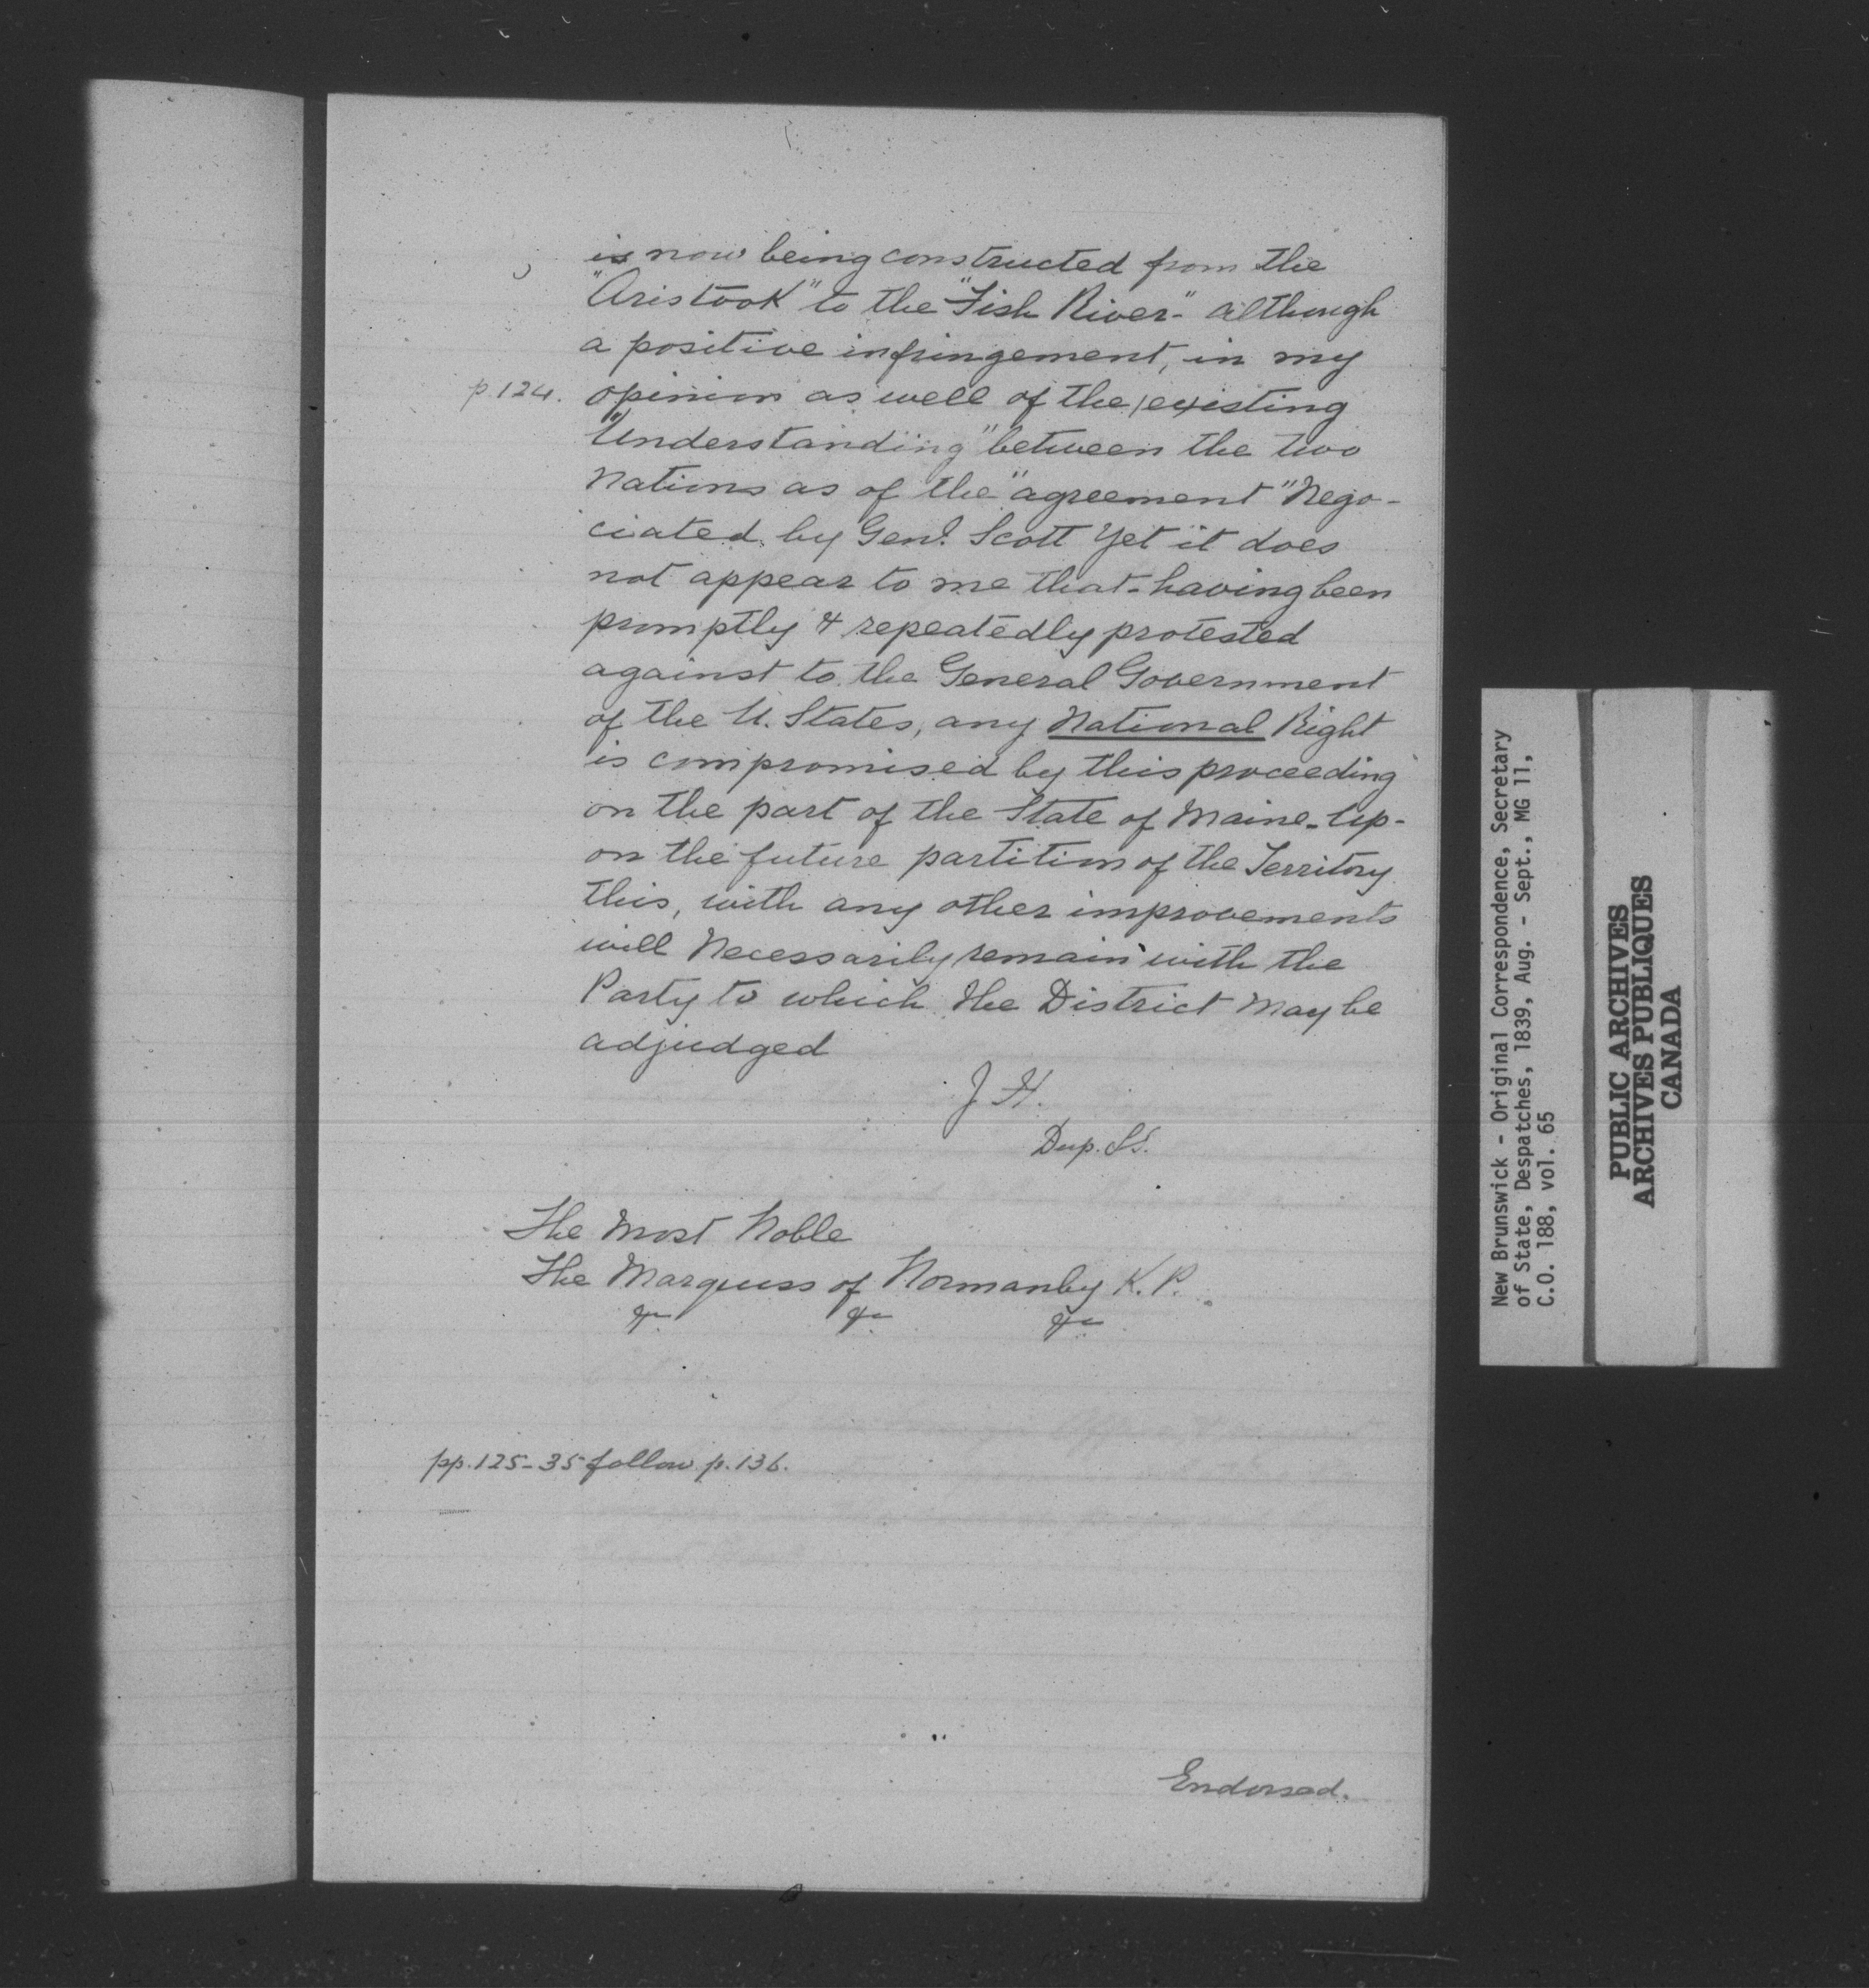 is now being constructed from the
"Aristook" to the "Fish River" although
a positive infringement, in my
p.124. opinion as well of the / existing
"Understanding" between the two
Nations as of the "agreement" Nego-
ciated by Genl. Scott Yet it does
not appear to me that - having been
promptly & repeatedly protested
against to the General Government
of the U. States, any National Right
is compromised by this proceeding
on the part of the State of Maine - Up-
on the future partition of the Territory
this, with any other improvements
will Necessarily remain with the
Party to which the District May be
adjudged
J. H.
The Most Noble
The Marquess of Normanby K. P.
&c &c &c
pp. 125-35 follow p. 136.
Endorsed.
New Brunswick - Original Correspondence, Secretary
of State, Despatches, 1839, Aug. - Sept., MG 11,
C.O. 188, vol. 65
PUBLIC ARCHIVES
ARCHIVES PUBLIQUES
CANADA